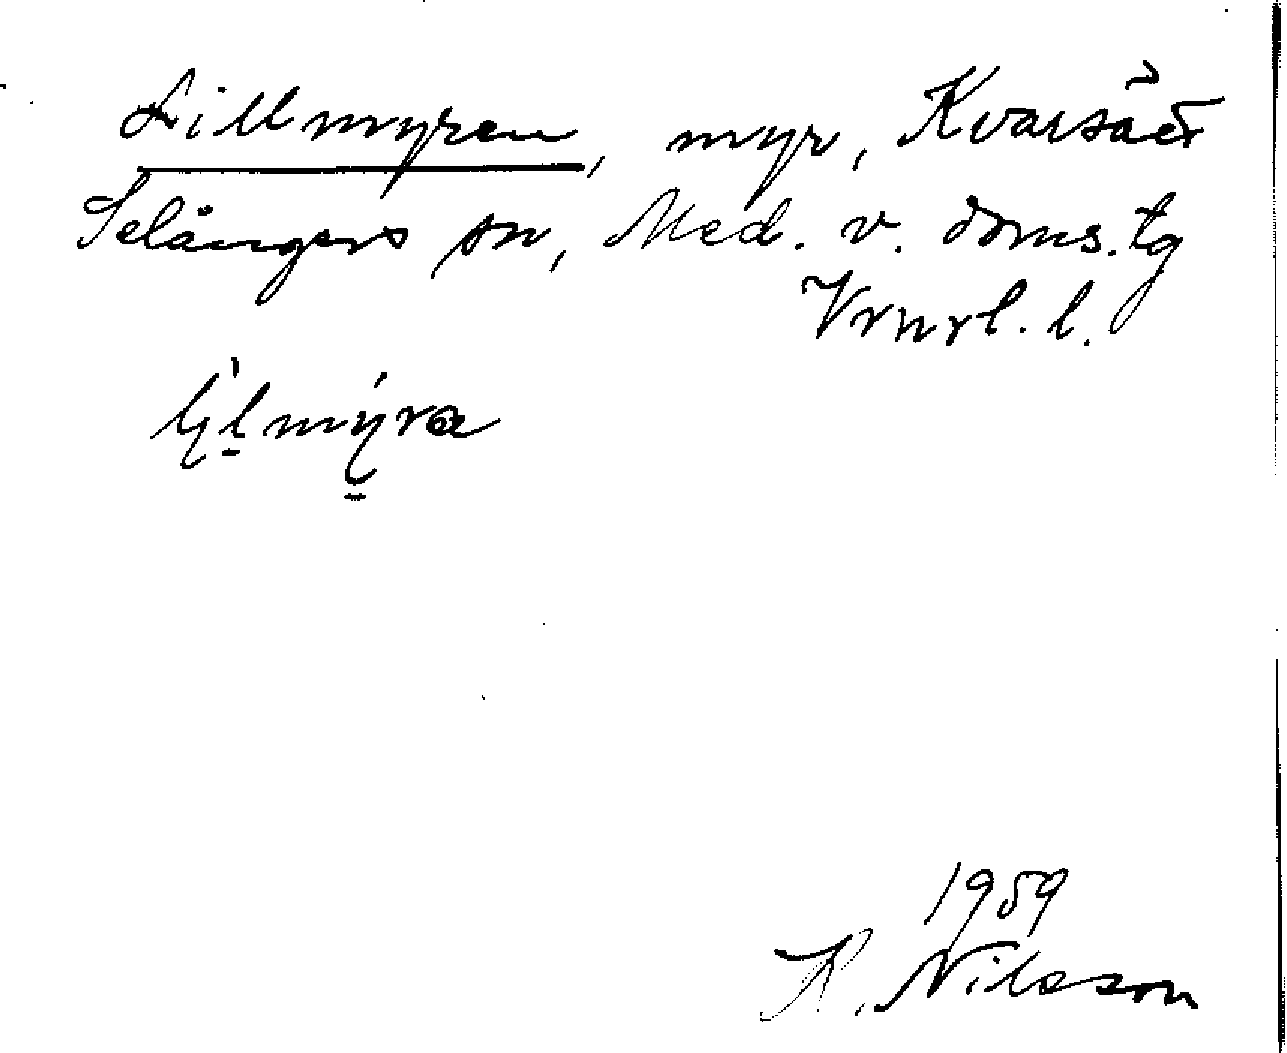 Lillmyren, myr, Kvarsätt
Selångers sn, Med. v. doms.tg
Vrnrl. l.
1959
K. Nilsson